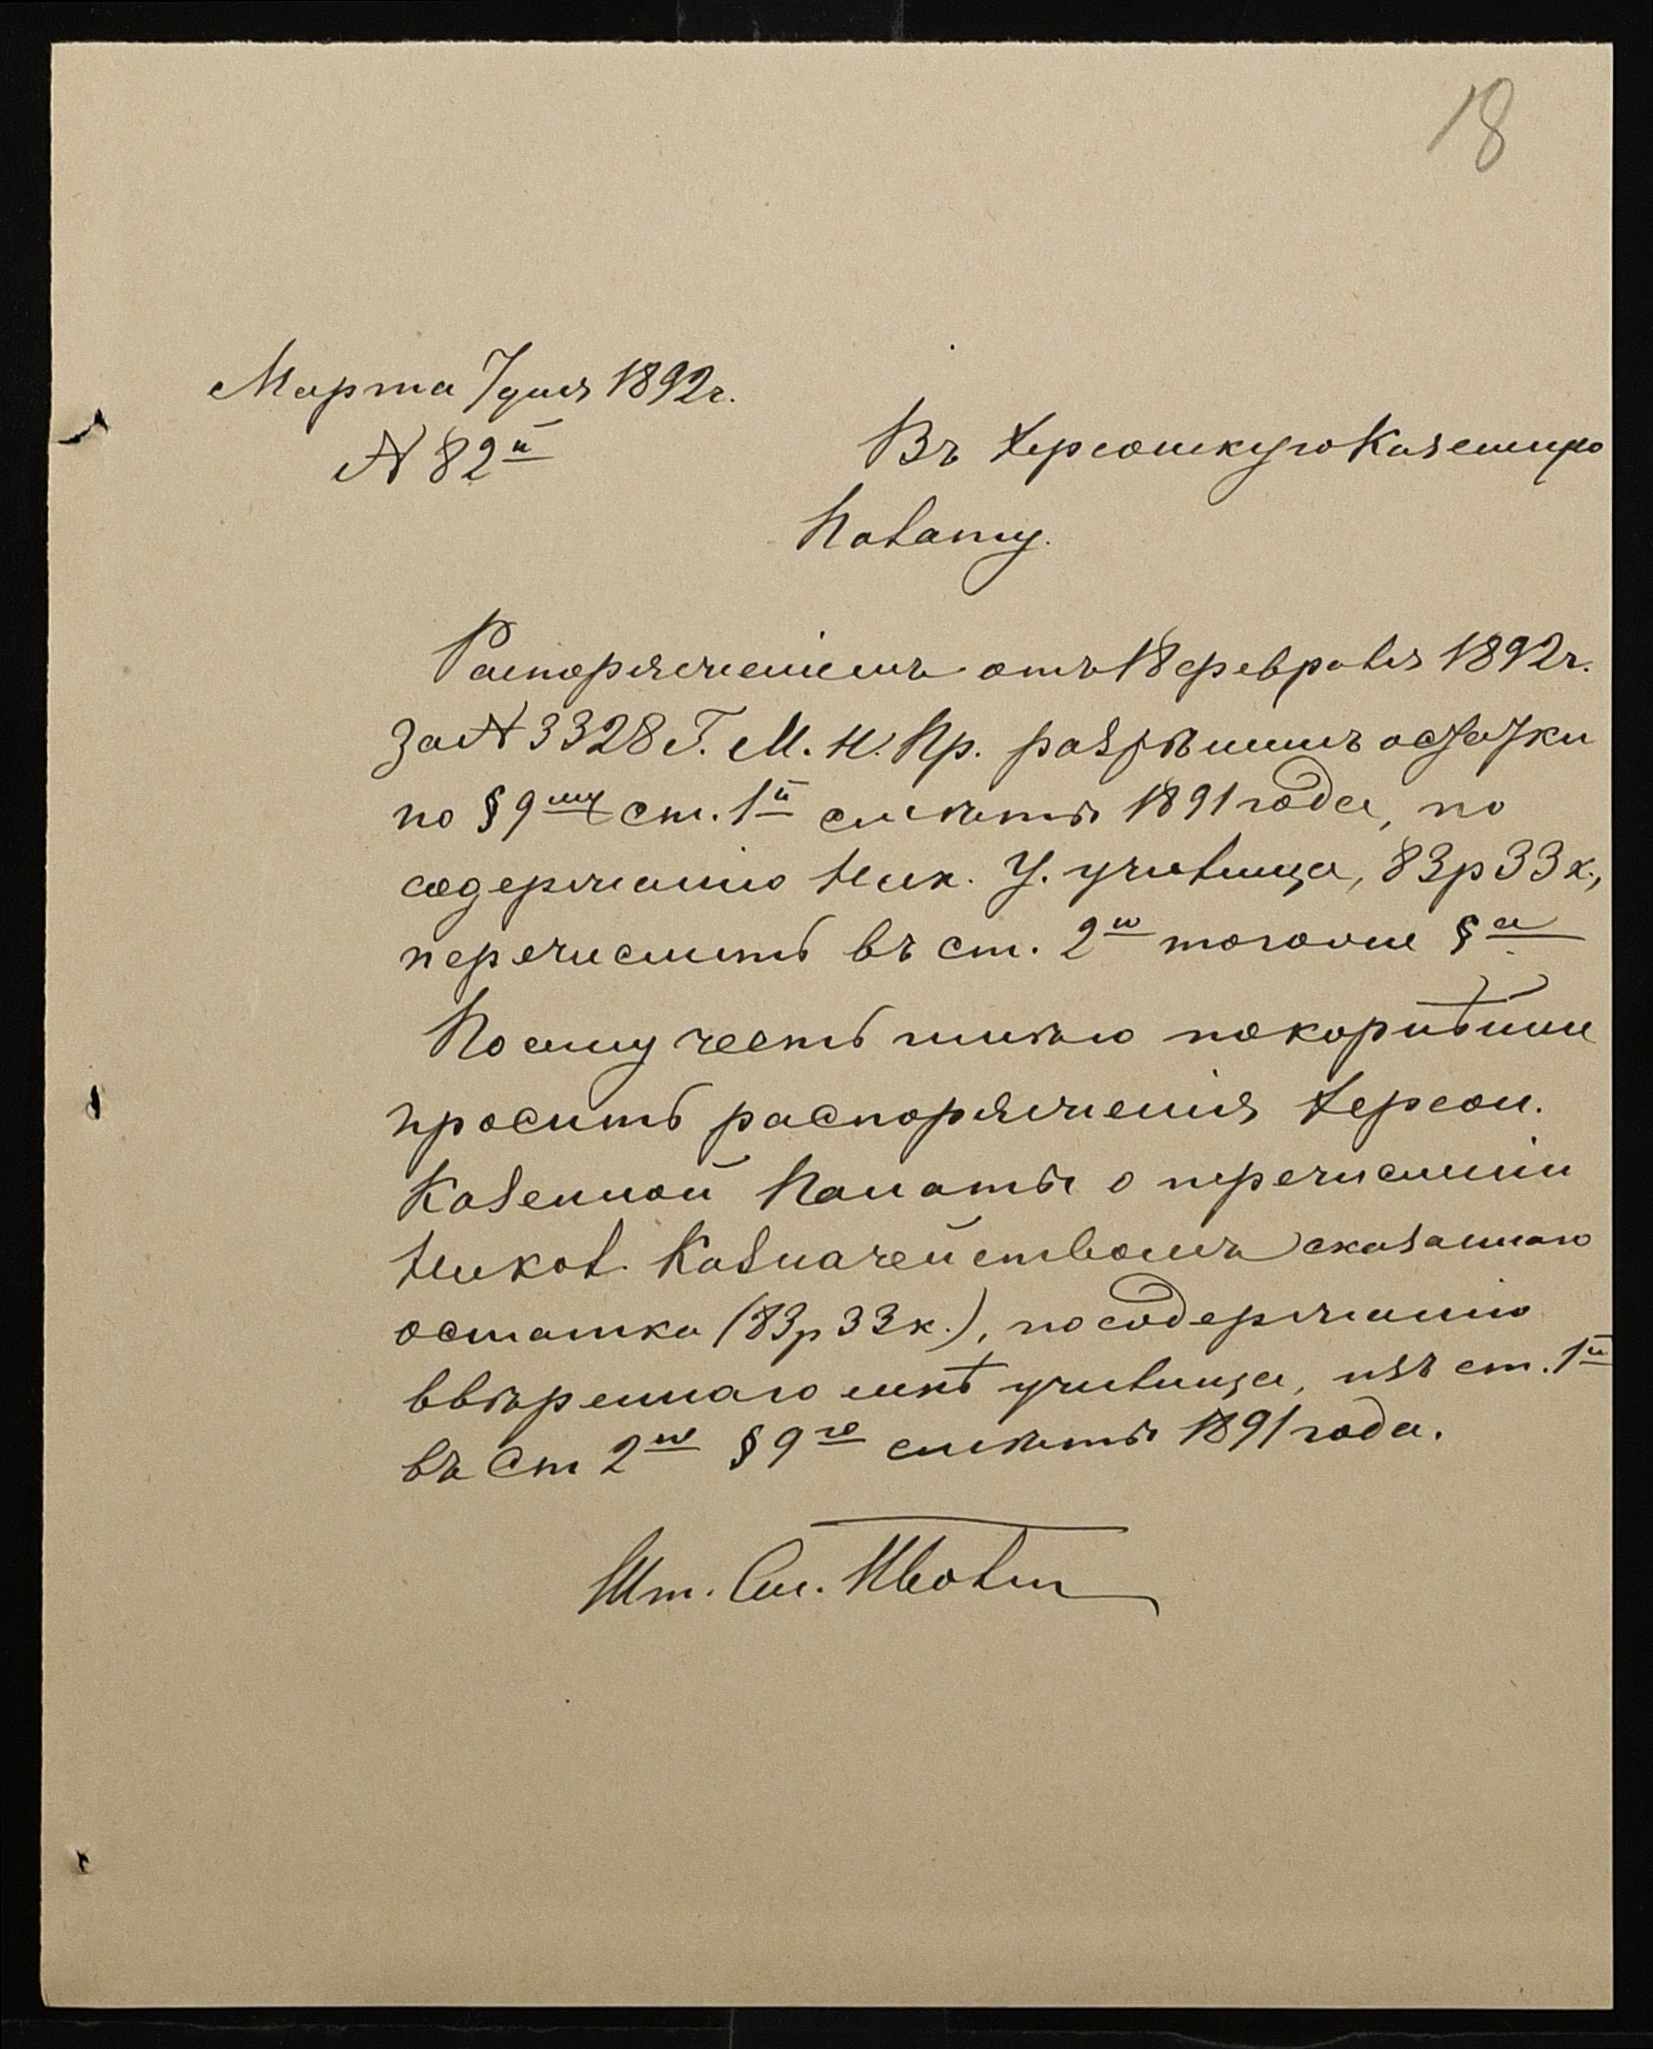 18
Марта 7 дня 1892 г.
№ 82й
Въ Херсонскую Казенную
Палату.
Распоряженіемъ отъ 18 февраля 1892 г.
За № 3328 Г. М. Н. Пр. разрѣшилъ остатки
по § 9му ст. 1й смѣты 1891 года, по
содержанію Ник. У. училища, 83 р 33 к.,
перечислить въ ст. 2ю тогоже §а
Посему честь имѣю покорнѣйше
просить распоряженія Херсон.
Казенной Палаты о перечисленіи
Никол. Казначействомъ сказаннаго
остатка (83 р 33 к.), по содержанію
ввѣреннаго мнѣ училища, изъ ст. 1й
въ Ст 2ю § 9го смѣты 1891 года.
Шт. См.